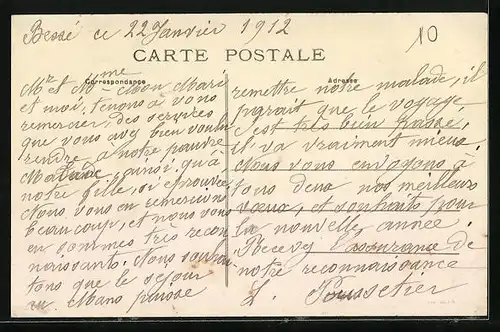 Bessé ce 22 Janvier 1912
10
CARTE POSTALE
Correspondance
Adresse
Mr et Mme Mon Mari
et moi, tenons à vous
remercier, des services
que vous avez bien voulu
rendre a notre pauvre
Malade, ainsi qu'à
notre fille, si éprouvée
Nous vous en remercions
beaucoup, et nous vous
en sommes très recon
naissants. Nous souhai
tons que le séjour
au Mans puisse
remettre notre malade, il
parait que le voyage,
c'est très bien passé,
il va vraiment mieux.
Nous vous envoyons à
tous deux nos meilleurs
vœux, et souhaits pour
la nouvelle année.
Recevez l'assurance de
notre reconnaissance
L.